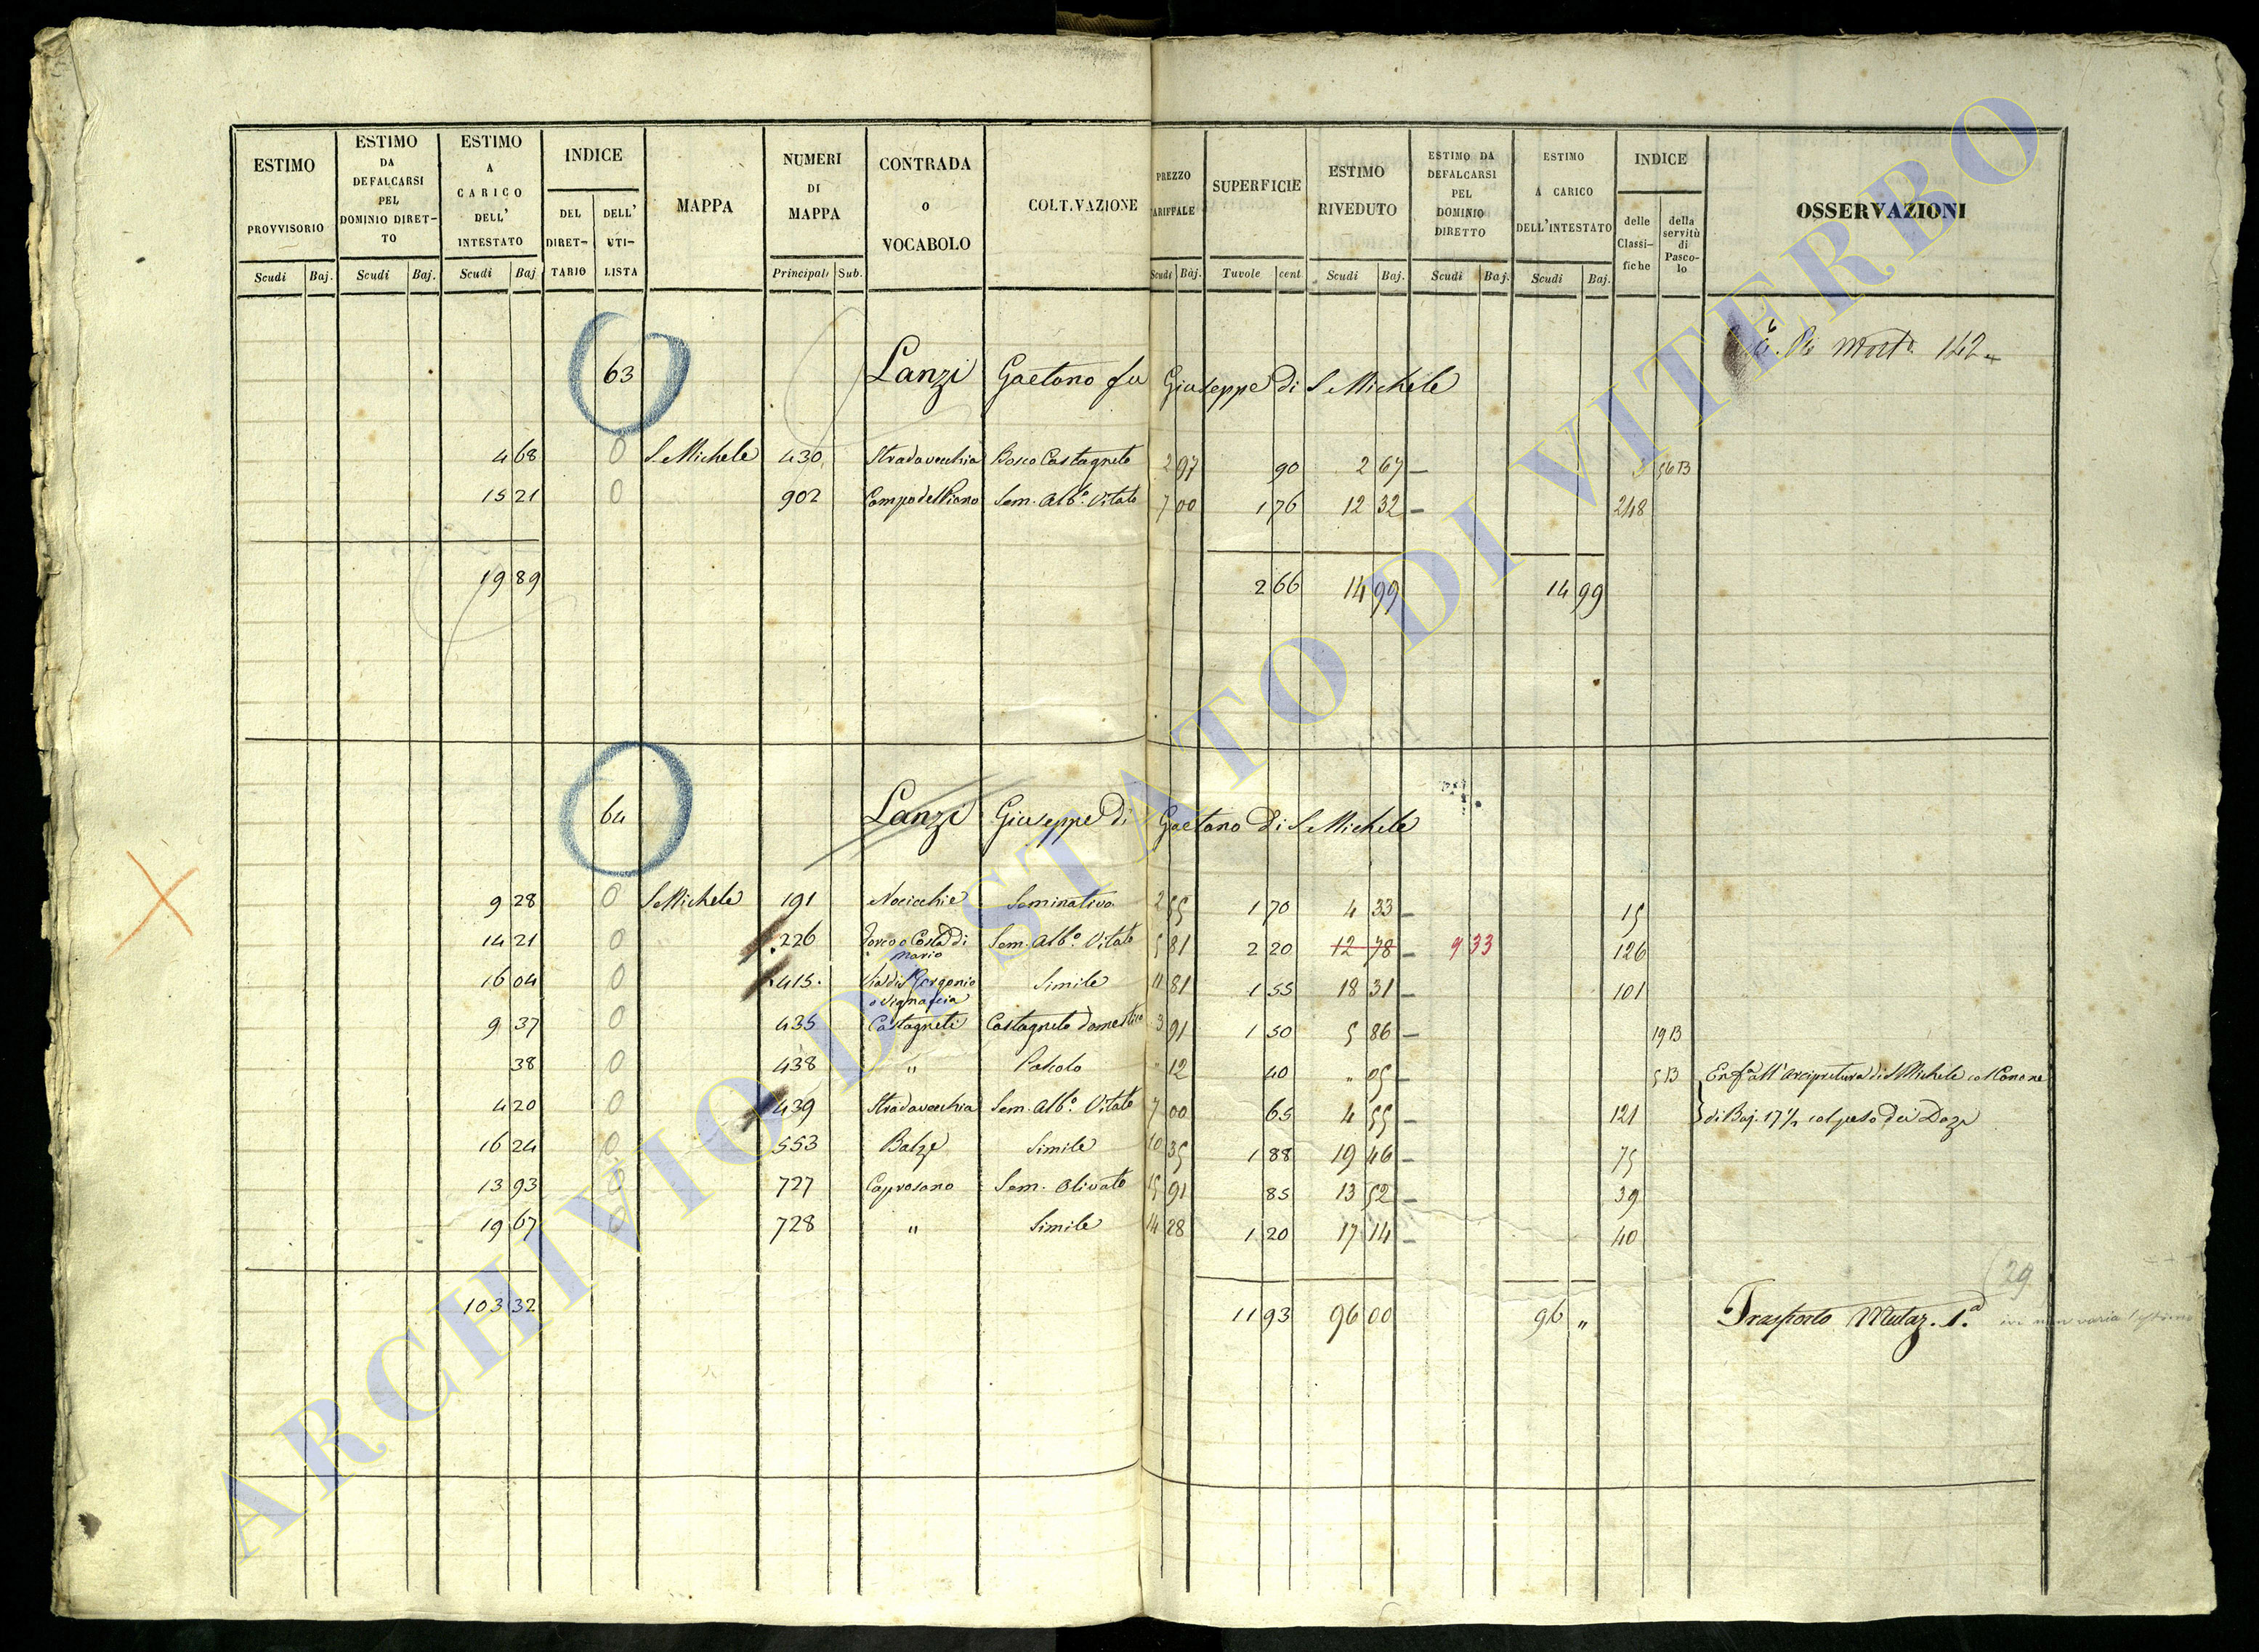 ESTIMO PROVVISORIO Scudi Baj.
ESTIMO DA DEFALCARSI PEL DOMINIO DIRET-TO Scudi Baj.
ESTIMO A CARICO DELL' INTESTATO Scudi Baj
INDICE DEL DIRET-TARIO DELL' UTI-LISTA
MAPPA
NUMERI DI MAPPA Principali Sub.
CONTRADA O VOCABOLO
COLTIVAZIONE
PREZZO TARIFFALE Scudi Baj.
SUPERFICIE Tavole cent
ESTIMO RIVEDUTO Scudi Baj.
ESTIMO DA DEFALCARSI PEL DOMINIO DIRETTO Scudi Baj.
ESTIMO A CARICO DELL'INTESTATO Scudi Baj.
INDICE delle Classi-fiche della servitù di Pasco-lo
OSSERVAZIONI
Mort. 142
63 Lanzi Gaetano fu Giuseppe di S Michele
4 68 0 S. Michele 430 Stradavecchia Bosco Castagneto 2 97 90 2 67 – 56 B
15 21 0 902 Campo del Piano Sem. Alb.o Vitato 7 00 1 76 12 32 – 248
19 89 2 66 14 99 14 99
64 Lanzi Giuseppe di Gaetano di S Michele
9 28 0 S Michele 191 Nocicchie Seminativo 2 55 1 70 4 33 – 15
14 21 0 " 226 o Costa di Mario Sem. Alb.o Vitato 5 81 2 20 12 78 – 9 33 126
16 04 0 415. Via di S Gorgonio o Vignaccia Simile 11 81 1 55 18 31 – 101
9 37 0 435 Castagneti Castagneto domestico 3 91 1 50 5 86 – 19 B
38 0 438 " Pascolo " 12 40 " 05 – 5 B Enf.a all'Arcipretura di S Michele col Canone
4 20 0 439 Stradavecchia Sem. Alb.o Vitato 7 00 65 4 55 – 121 di Baj. 17 1/2 col peso dei Dazi
16 24 0 553 Balze Simile 10 35 1 88 19 46 – 75
13 93 0 727 Caprosano Sem. Olivato 15 91 85 13 52 – 39
19 67 0 728 " Simile 14 28 1 20 17 14 – 40
29
103 32 11 93 96 00 96 " Trasporto Mutaz. 1.a non varia l'estimo
ARCHIVIO DI STATO DI VITERBO